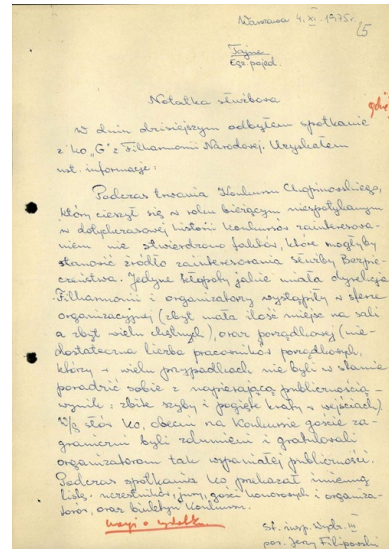 Warszawa 4.XI.1975r
15
Tajne
Egz. pojed.
Notatka służbowa
gdzie
W dniu dzisiejszym odbyłem spotkanie
z ko „G" z Filharmonii Narodowej. Uzyskałem
nst. informacje:
Podczas trwania Konkursu Chopinowskiego,
który cieszył się w roku bieżącym niespotykanym
w dotychczasowej historii konkursów zainteresowa-
niem nie stwierdzono faktów, które mogłyby
stanowić źródło zainteresowania Służby Bezpie-
czeństwa. Jedyne kłopoty jakie miała dyrekcja
Filharmonii i organizatorzy wystąpiły w sferze
organizacyjnej (zbyt mała ilość miejsc na sali
a zbyt wielu chętnych), oraz porządkowej (nie-
dostateczna liczba pracowników porządkowych,
którzy w wielu przypadkach nie byli w stanie
poradzić sobie z napierającą publicznością
wynik: zbite szyby i pogięte kraty w wejściach)
W/g słów ko, obecni na Konkursie goście za-
graniczni byli zdumieni i gratulowali
organizatorom tak wspaniałej publiczności.
Podczas spotkania ko przekazał imienną
listę uczestników, jury, gości honorowych i organiza-
torów, oraz biuletyn Konkursu.
St. insp. Wydz. III
por. Jerzy Filipowski